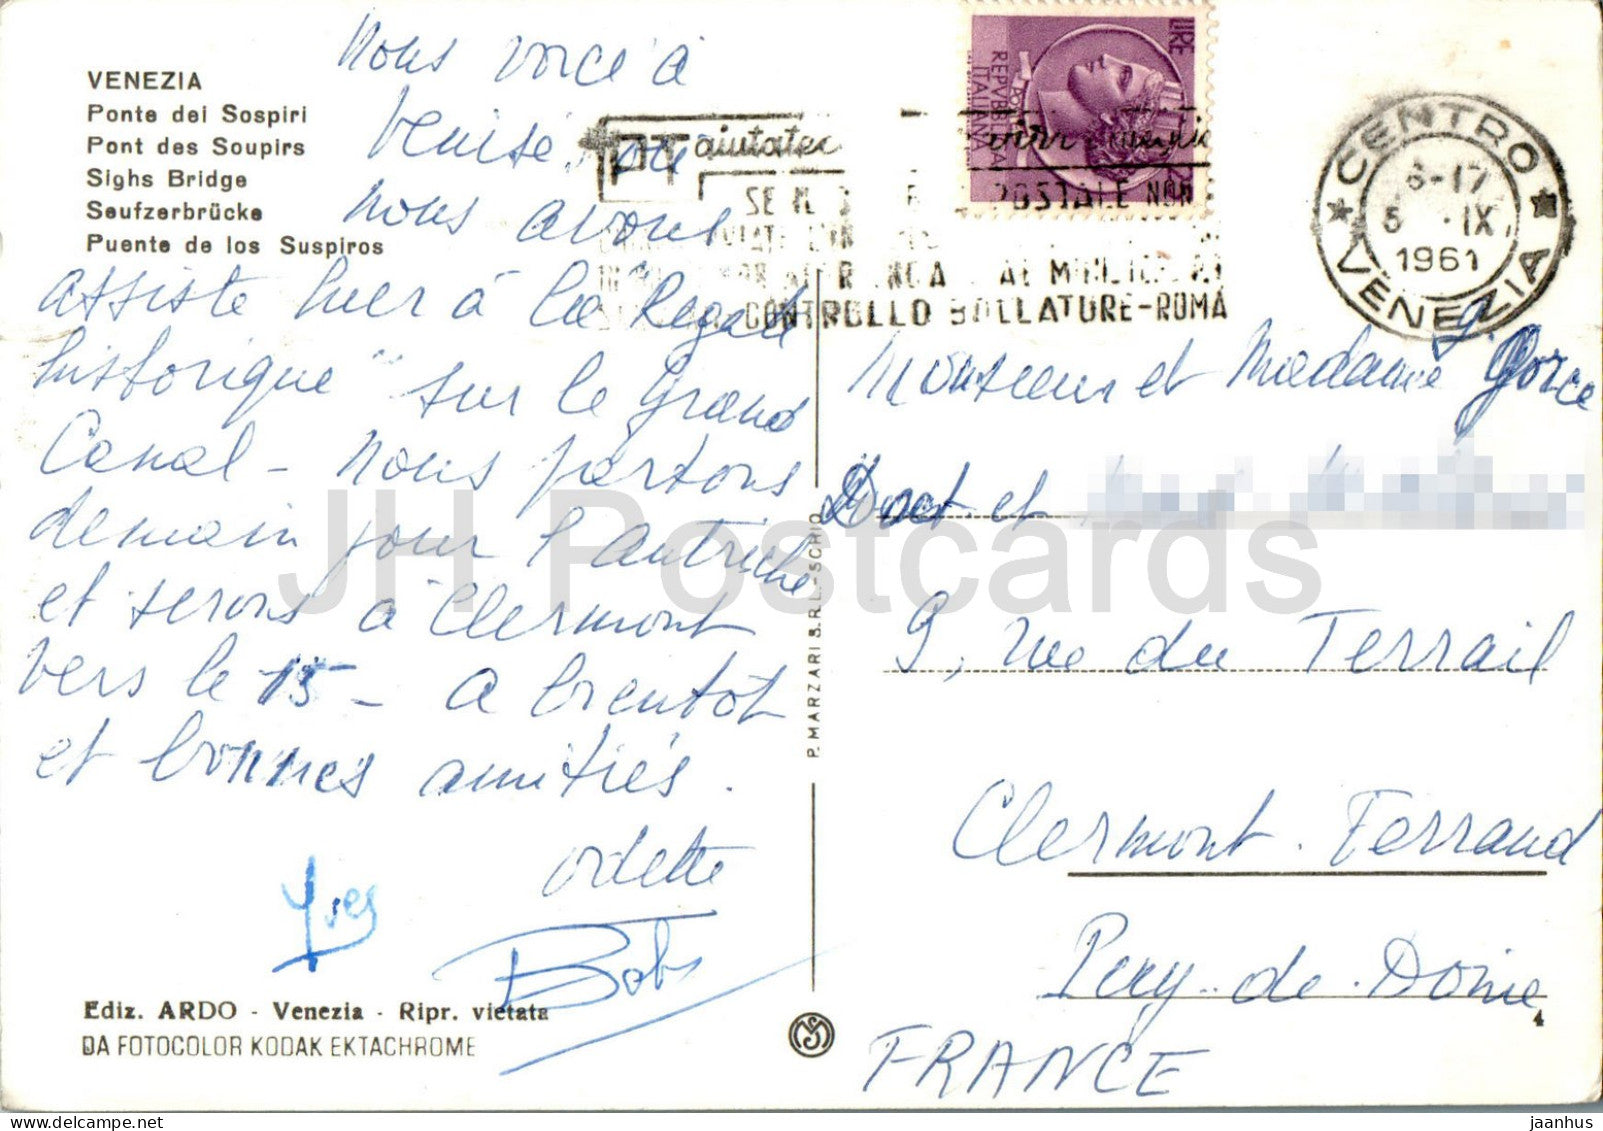 VENEZIA
Ponte dei Sospiri
Pont des Soupirs
Sighs Bridge
Seufzerbrücke
Puente de los Suspiros
Nous voici à
Venise, où
nous avons
assisté hier à la Regate
historique" sur le Grand
Canal - Nous partons
demain pour l'autriche
et serons à Clermont
vers le 15 - A bientôt
et bonnes amitiés.
Odette
Yves
Bob
Ediz. ARDO - Venezia - Ripr. vietata
DA FOTOCOLOR KODAK EKTACHROME
P. MARZARI S.R.L. - SCHIO
LIRE
REPVBBLICA
ITALIANA
PT aiutateci
POSTALE NON
CONTROLLO BOLLATURE-ROMA
CENTRO
6-17
5 IX
1961
VENEZIA
Monsieur et Madame Gorce
Doct et
9, rue du Terrail
Clermont. Ferrand
Puy-de-Dôme
FRANCE
4
JH Postcards
jaanhus delcampe.net